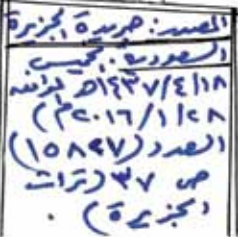 المصدر: جريدة الجزيرة
السعودية. الخميس
١٨/٤/١٤٣٧هـ الموافق
٢٨/١/٢٠١٦م)
العدد (١٥٨٢٧)
ص ٣٧ (تراث
الجزيرة).